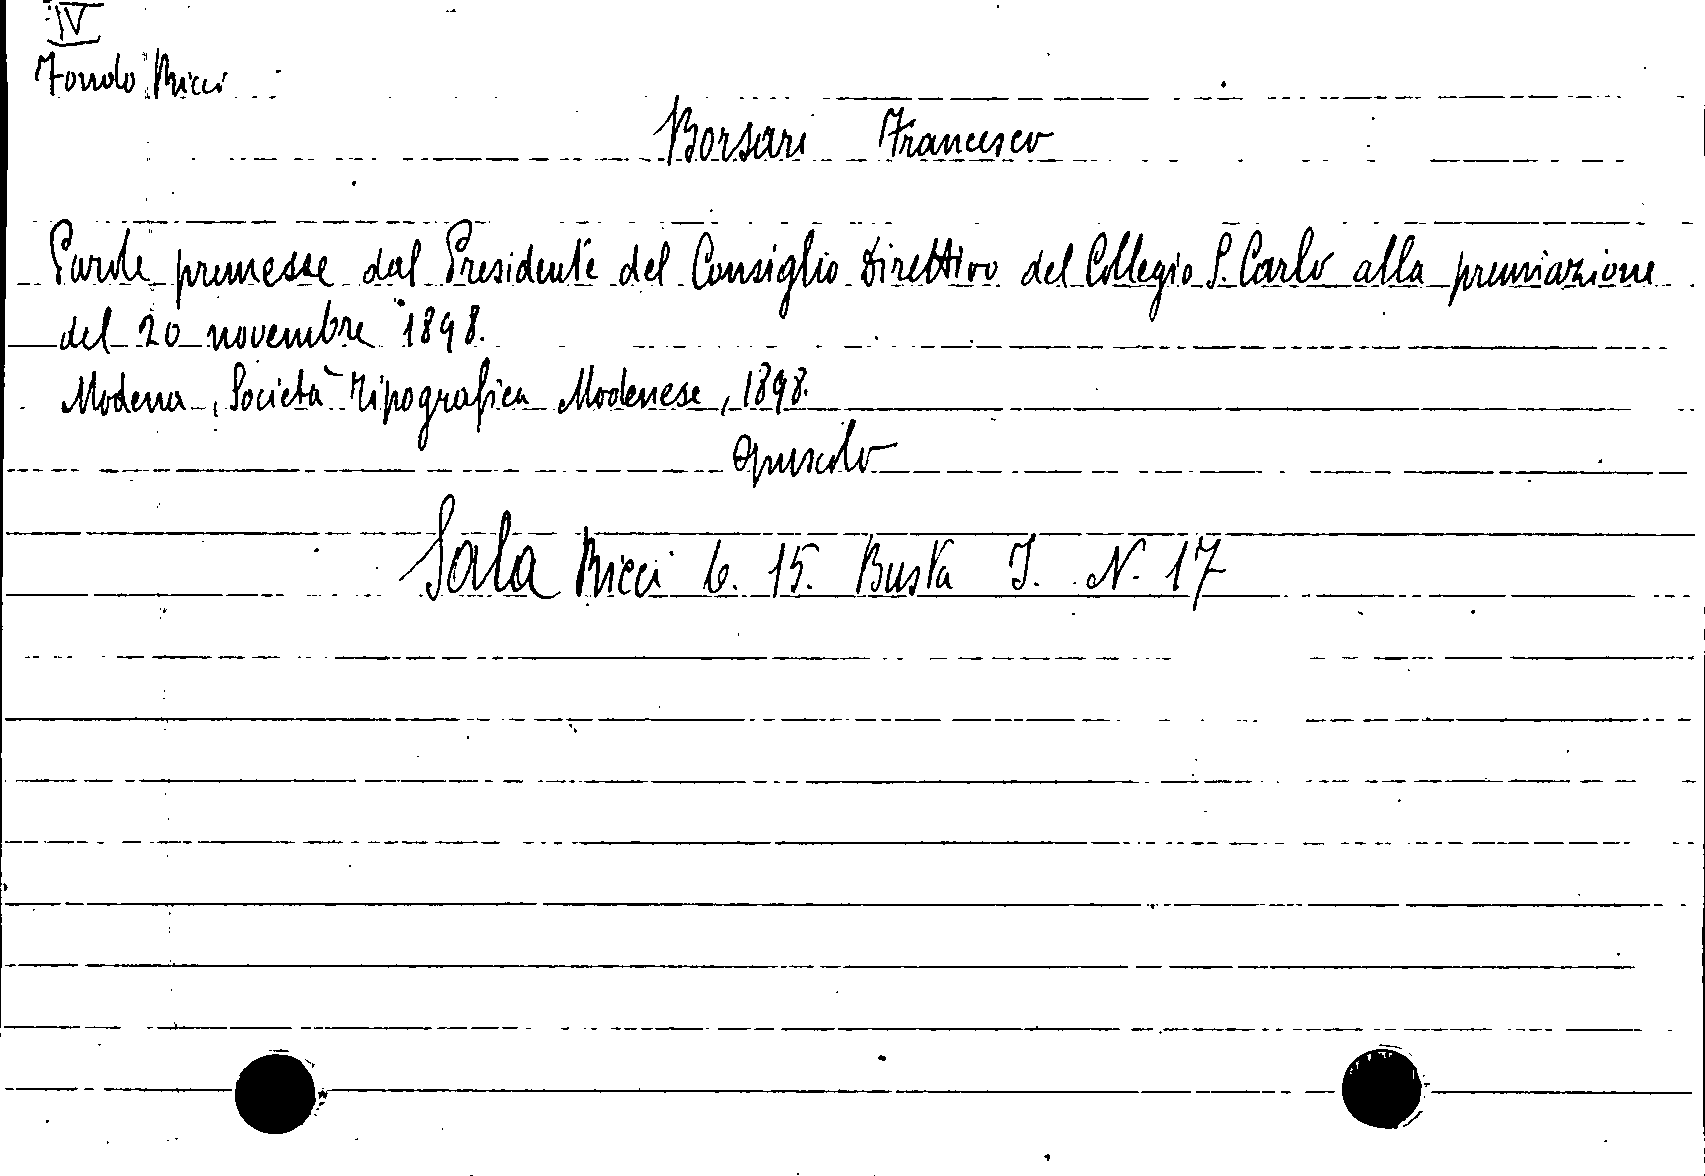 IV
Fondo Ricci
Borsari Francesco
Parole premesse dal Presidente del Consiglio Direttivo del Collegio S. Carlo alla premiazione
del 20 novembre 1898.
Modena, Società Tipografica Modenese, 1898.
opuscolo
Sala Ricci 6. 15. Busta I. N. 17